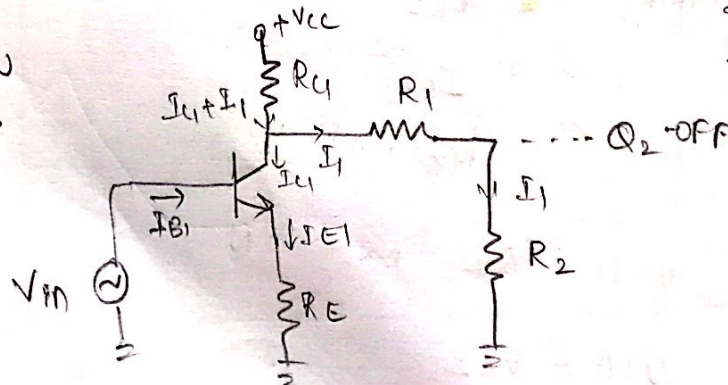 +Vcc
RC1
IC1+I1
R1
I1
IC1
Q2-OFF
IB1
IE1
I1
R2
Vin
RE